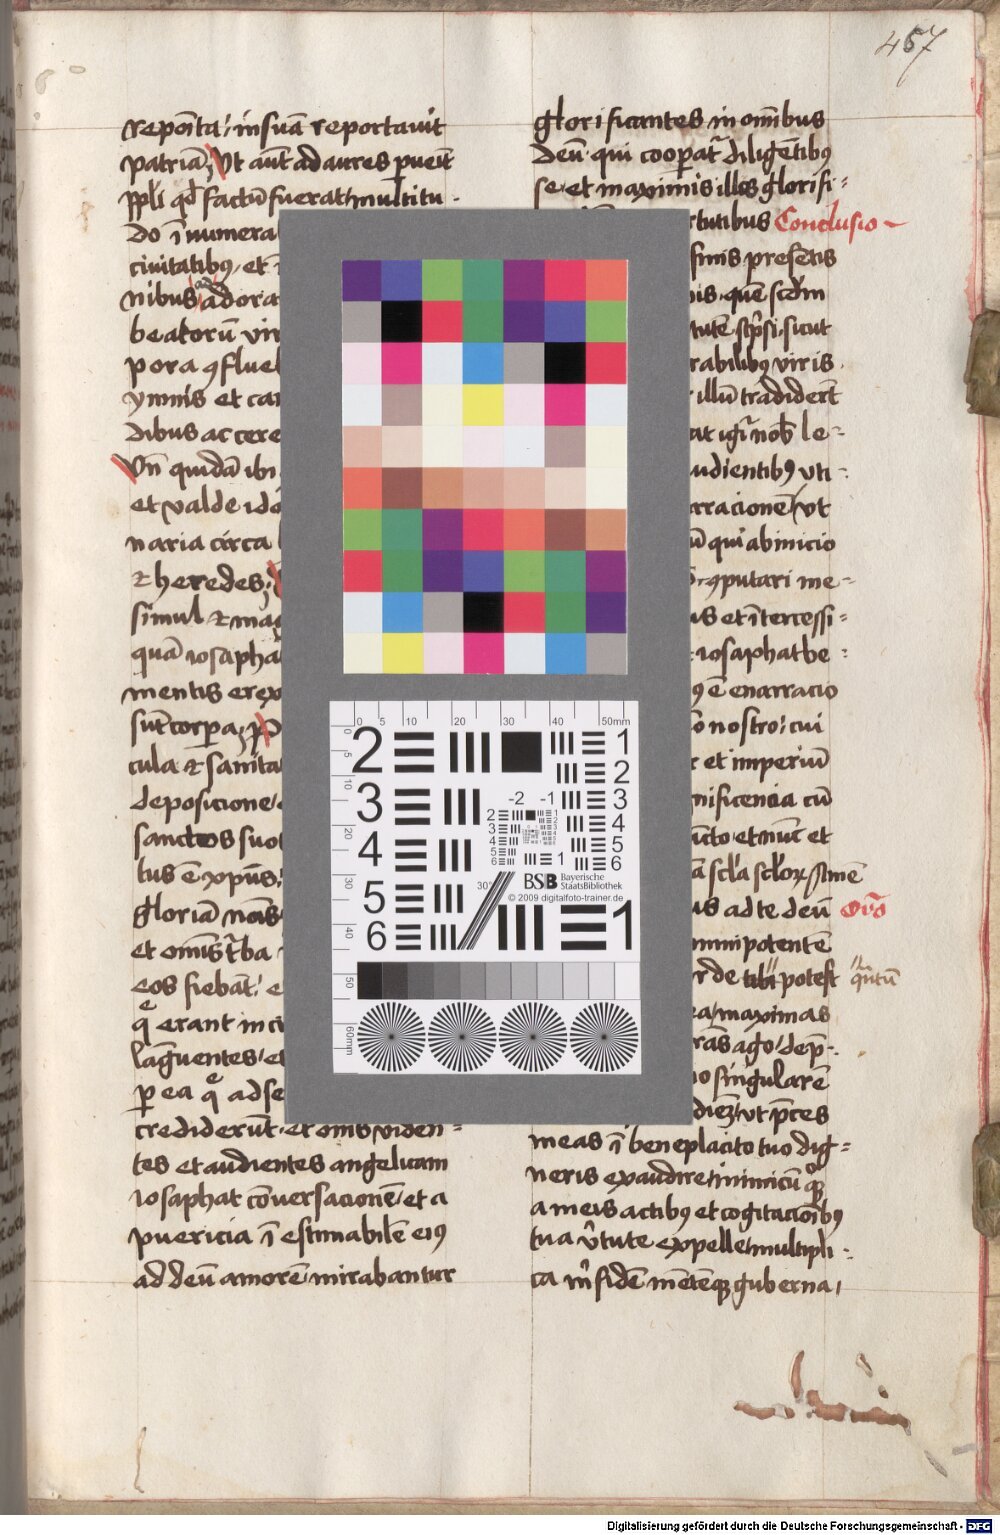 457
repoīta / in suā reportauit
patriā Vt aūt ad aures puēīt
ppli qd factū fuerat multitu
do īnumera
ciuitatibꝫ et
nibus ad ora
beatorū vir
pora ꝯflue
ymnis et can
dibus ac cere
Vn̄ quidā ibi
et valde ido
naria circa
⁊ heredes
simul ⁊ mag
quā iosapha
mentis erex
sūt corpa
cula ⁊ sanita
deposicione
sanctos suo
tus ē xp̄us
gloriā nōis
et om̄is
eos fiebāt
q̄ erant in ci
lāguentes et
ꝑ ea q̄ ad se
crediderūt et om̄s viden
tes et audientes angelicam
iosaphat cōuersacionē et a
puericia īestimabilē eiꝰ
ad deū amorē mirabantur
glorificantes in om̄ibus
deū qui cooꝑat̄ diligētibꝫ
se et maximis illos glorifi
rtutibus Conclusio
finis presētis
is quē scdm
tutē sc̄psi sicut
rabilibꝫ viris
illū tradidert̄
at igr̄ nob̄ le
udientibꝫ vti
rracionē vt
ū qui ab inicio
ꝯputari me
us et ītercessi
iosaphat be
ꝫ ē enarracio
o nostro cui
et imperiū
nificencia cū
ūcto et nūc et
ā scl̄a sclorꝫ Amē
us ad te deū Orō
mnipotentē
rde tibi potest q̄ntū
ea maximas
rās ago dep̄
o singularē
vt p̄ces
meas ī beneplacito tuo dig
neris exaudire inimicū qꝫ
a meis actibꝫ et cogitacōibꝫ
tua v̄tute expelle multipli
ca in̄ fidē mētēqꝫ guberna
0 5 10 20 30 40 50mm
0 10 20 30 40 50 60mm
2 1
2
3 -2 -1 3
4 4
5
6
5 30° BSB Bayerische StaatsBibliothek
© 2009 digitalfoto-trainer.de
6 1
Digitalisierung gefördert durch die Deutsche Forschungsgemeinschaft - DFG